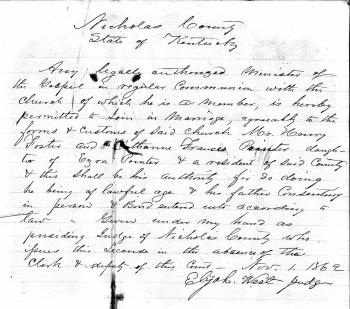 Nicholas County
State of Kentucky
Any legally authorized Minister of
the Gospel in regular Communion with the
church of which he is a Member, is hereby
permitted to Join in Marriage, agreeably to the
forms & Customs of Said Church Mr. Henry
Foster and Frances Painter daugh-
ter of Ezra Painter & a resident of Said County
& this Shall be his authority for so doing
he being of lawful age & his father Consenting
in person & Bond entered into according to
law - Given under my hand as
presiding Judge of Nicholas County who
issues this License in the absence of the
Clerk & deputy of this Court Nov. 1. 1862
Elijah West Judge